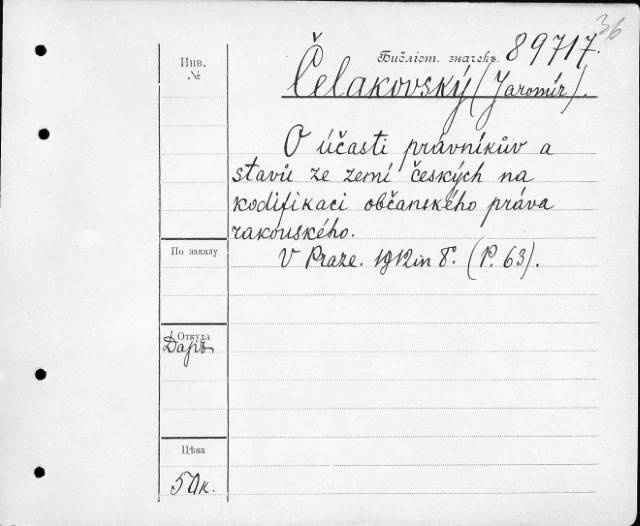 36
Библіот. значекъ 89717.
Инв.
№
Čelakovský (Jaromír).
O účasti právníkův a
stavů ze zemí českých na
kodifikaci občanského práva
rakouského.
V Praze. 1912 in 8º. (P. 63).
По заказу
Откуда
Даръ
Цѣна
50 к.